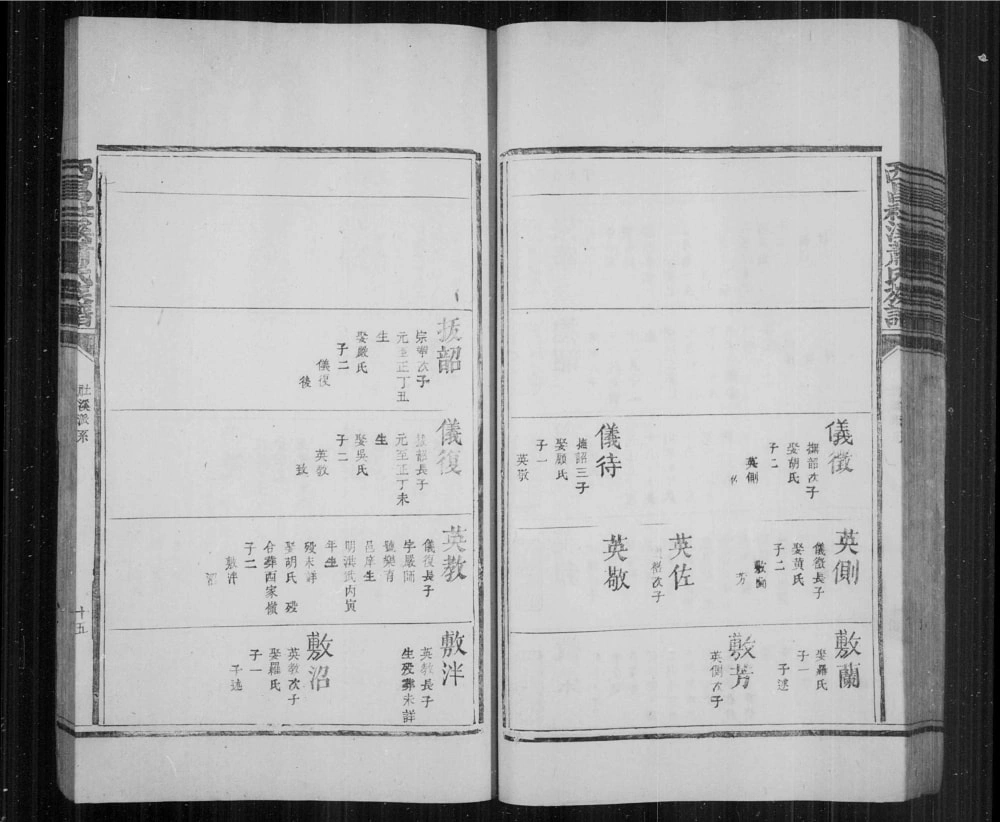 儀徵
撫韶次子
娶胡氏
子二
英側
佐
儀待
撫韶三子
娶顧氏
子一
英敬
英側
儀徵長子
娶黃氏
子二
敷蘭
芳
英佐
徵次子
英敬
敷蘭
娶羅氏
子一
子述
敷芳
英側次子
社溪派系
十五
援韶
宗華次子
元至正丁丑
生
娶嚴氏
子二
儀復
後
儀復
援韶長子
元至正丁未
生
娶吳氏
子二
英教
致
英教
儀復長子
字嚴師
號樂育
邑庠生
明洪武丙寅
年生
歿未詳
娶胡氏 歿
合葬西家嶺
子二
敷泮
沼
敷泮
英教長子
生歿葬未詳
敷沼
英教次子
娶羅氏
子一
子遠